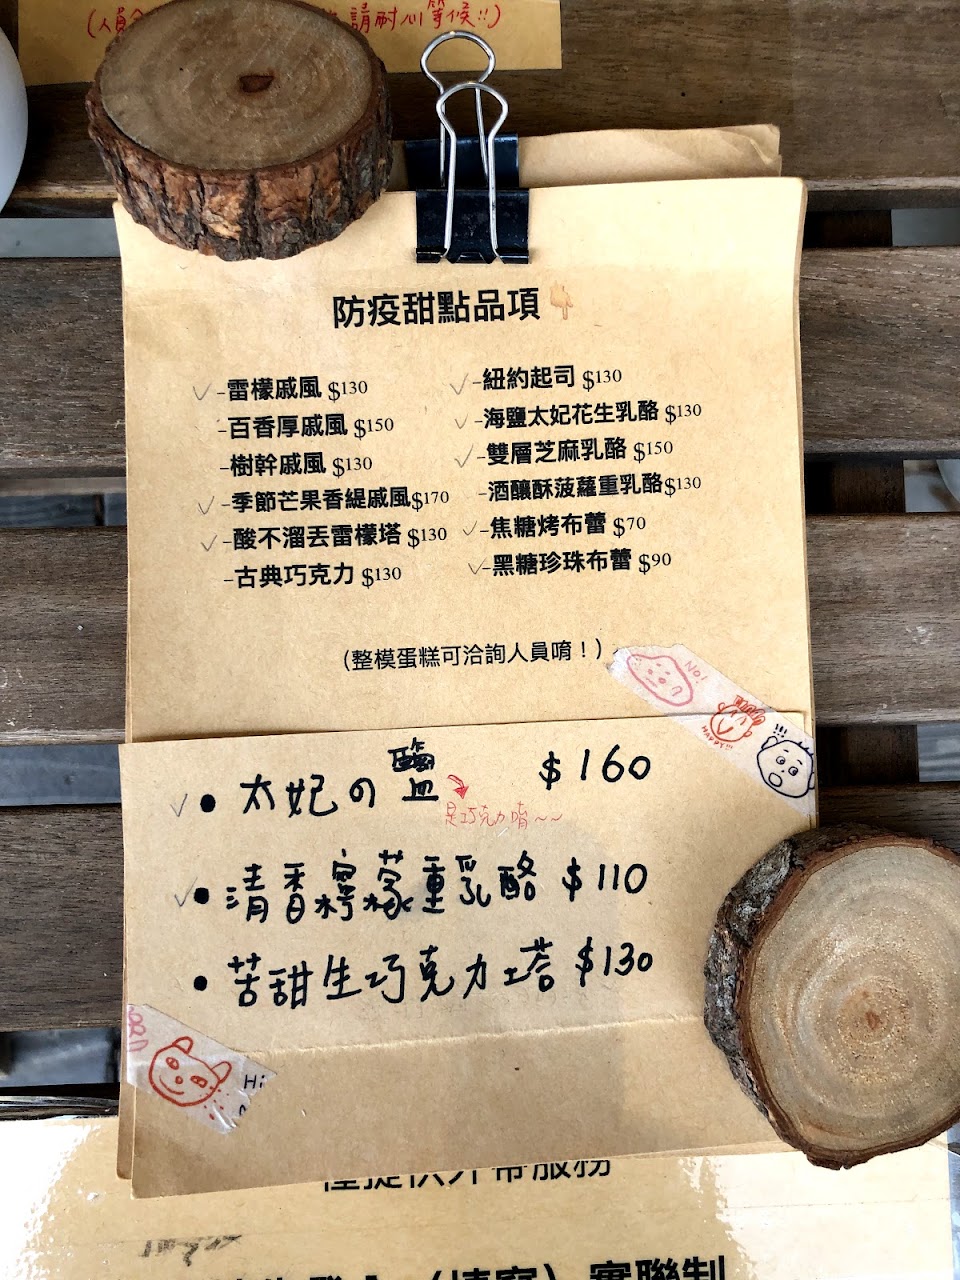 請耐心等候!!)
防疫甜點品項👇
-雷檬戚風 $130
-百香厚戚風 $150
-樹幹戚風 $130
-季節芒果香緹戚風$170
-酸不溜丟雷檬塔 $130
-古典巧克力 $130
-紐約起司 $130
-海鹽太妃花生乳酪 $130
-雙層芝麻乳酪 $150
-酒釀酥菠蘿重乳酪$130
-焦糖烤布蕾 $70
-黑糖珍珠布蕾 $90
(整模蛋糕可洽詢人員唷！)
No!
HAPPY!!!
!!!
• 太妃の鹽 $160
是巧克力唷~~
• 清香檸檬重乳酪 $110
• 苦甜生巧克力塔 $130
Hi
僅提供外帶服務
實聯制